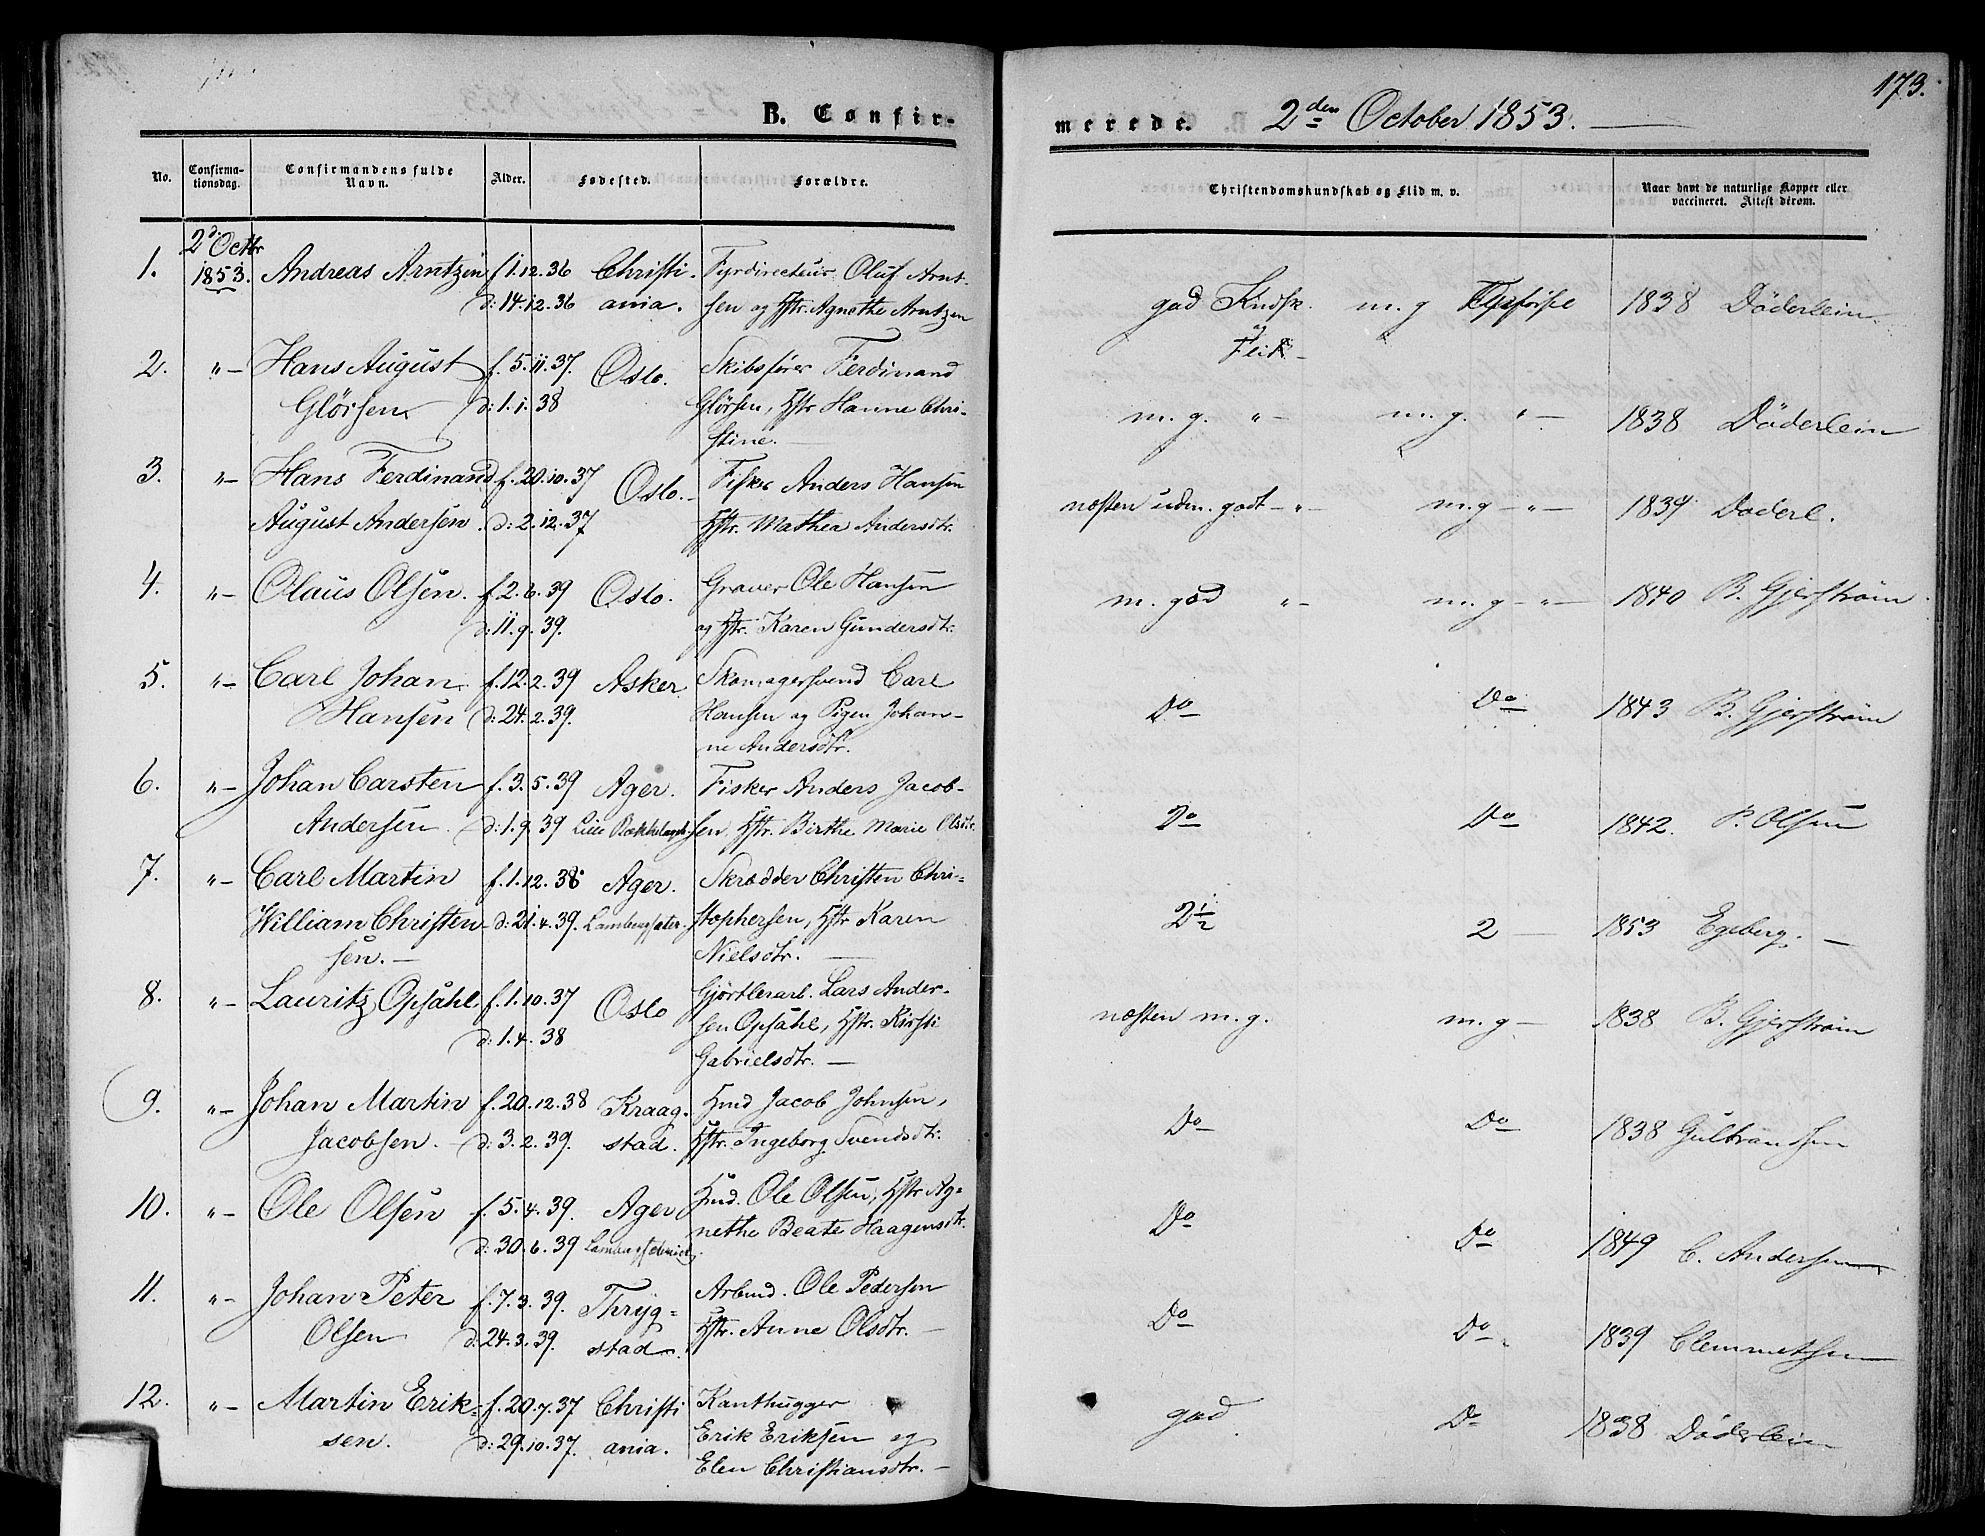 173.
B. Confir-
merede. 2den October 1853.
No. Confirma-tionsdag. Confirmandens fulde Navn. Alder. Fødested. Forældre.
Christendomskundskab og Flid m. v. Naar havt de naturlige Kopper eller vaccineret. Attest derom.
1. 2d. Octbr 1853. Andreas Arntzen f. 1.12.36 Christi- Fyrdirecteur Oluf Arnt-
d: 14.12.36 ania. sen og Hstr. Agnethe Arntzen
god Kndsk. og Flid m. g 1838 Döderlein
2. "– Hans August f. 5.11.37 Oslo. Skibsfører Ferdinand
Glörsen d: 1.1.38 Glörsen, Hstr Hanne Chri-
stine. —
m. g. "– m. g. "– 1838 Döderlein
3. "– Hans Ferdinand f. 20.10.37 Oslo. Fisker Anders Hansen
August Andersen. d: 2.12.37 Hstr. Mathea Andersdtr.
næsten udm. godt – "– m. g – "– 1839 Döderl.
4. "– Olaus Olsen. f. 2.6.39 Oslo. Graver Ole Hansen
d: 11.9.39. og Hstr. Karen Gundersdtr.
m. god "– m. g – "– 1840 B. Gjerström
5. "– Carl Johan f. 12.2.39 Asker Skomagersvend Carl
Hansen d: 24.2.39. Hansen og Pigen Johan-
ne Andersdtr.
Do Do 1843 B. Gjerström
6. "– Johan Carsten f. 3.5.39 Ager. Fisker Anders Jacob-
Andersen. d: 1.9.39 Lille sen, Hstr. Birthe Marie Olsdtr.
Do Do 1842. P. Olsen
7. "– Carl Martin f. 1.12.38 Ager. Skrædder Christen Chri-
William Christen- d: 21.4.39. Lambergsæter. stophersen, Hstr Karen
sen. — Nielsdtr. —
2½ 2 — 1853 Egeberg. —
8. "– Lauritz Opsahl. f. 1.10.37 Oslo Gjørtlerarb. Lars Ander-
d: 1.4.38 sen Opsahl, Hstr. Kirsti
Gabrielsdtr. —
næsten m. g. m. g — 1838 B. Gjerström
9. "– Johan Martin f. 20.12.38 Kraag- Hmd Jacob Johnsen,
Jacobsen. — d: 3.2.39. stad. Hstr. Ingeborg Svendsdtr.
Do Do 1838 Gulbrandsen
10. "– Ole Olsen f. 5.4.39. Ager Hmd. Ole Olsen, Hstr Ag-
d: 30.6.39 nethe Beate Haagensdtr.
Do Do 1849 C. Andersen
11. "– Johan Peter f. 7.3.39. Thryg- Arbmd. Ole Pedersen
Olsen d: 24.3.39. stad. Hstr. Anne Olsdtr. —
Do Do 1839 Clemmetsen
12. "– Martin Erik- f. 20.7.37 Christi Kanthugger
sen. d: 29.10.37. ania. Erik Eriksen og
Elen Christiansdtr. —
god. Do 1838 Döderlein